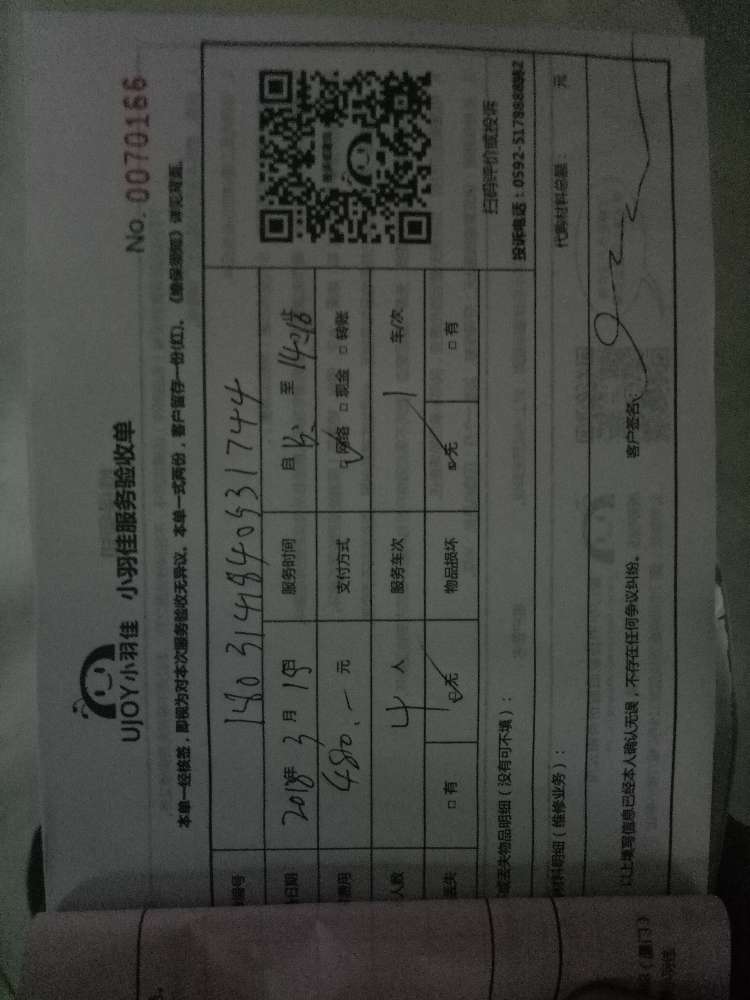 UJOY小羽佳 小羽佳服务验收单
No. 0070166
本单一经核签，即视为对本次服务验收无异议。本单一式两份，客户留存一份(红)。《维保须知》详见背面。
编号 1803141840931744
日期： 2018年3月19日 服务时间 自 至
费用 480.- 元 支付方式 □网络 □现金 □转账
人数 4 人 服务车次 1 车/次
丢失 □有 □无 物品损坏 □无 □有
扫码评价或投诉
投诉电话：0592-5178888
或丢失物品明细（没有可不填）：
材料明细（维修业务）： 代购材料总额： 元
以上填写信息已经本人确认无误，不存在任何争议纠纷。 客户签名：
（厦门）